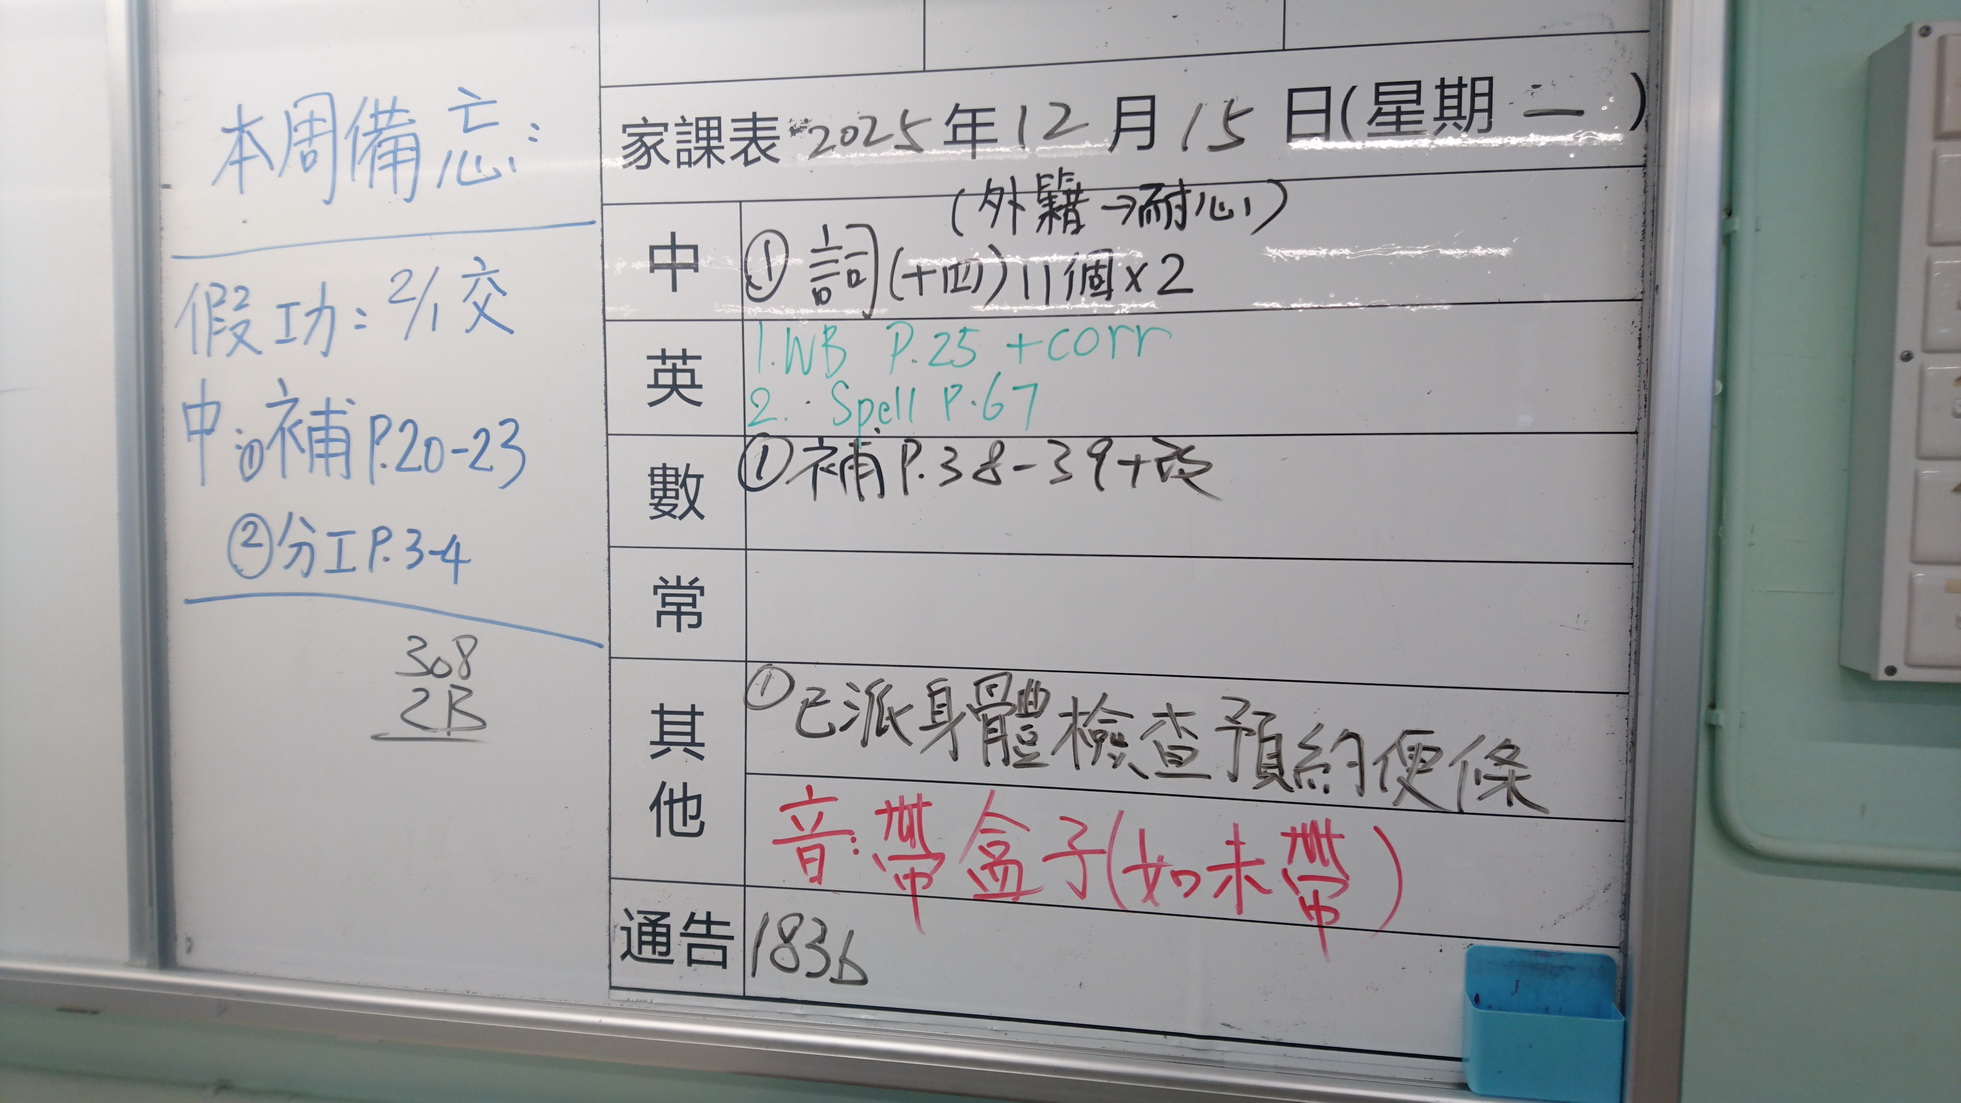 本周備忘:
假工功: 2/1交
中:①補P.20-23
②分工P.3-4
308
2B
家課表 2025年12月15日(星期一)
(外籍→耐心)
中 ①詞(十四)11個×2
英 1.WB P.25 +corr
2. Spell P.67
數 ①補P.38-39+改
常
其他 ①已派身體檢查預約便條
音:帶盒子(如未帶)
通告 183b